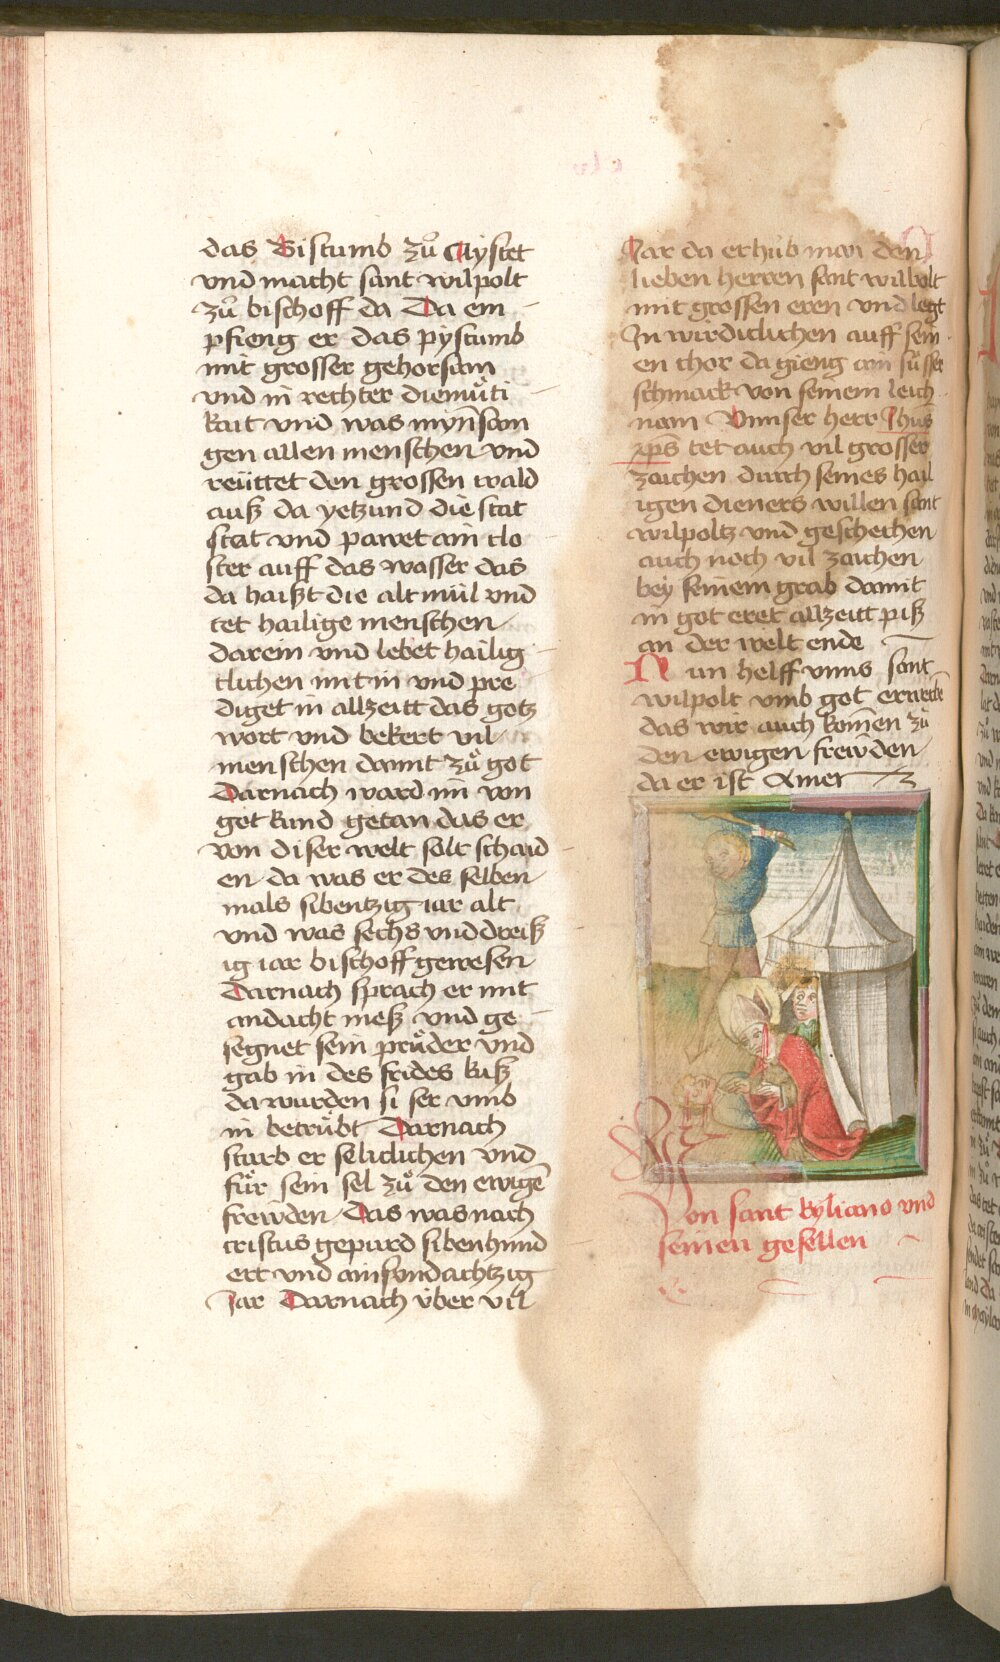 das Bistumb zů Aÿstet
vnd macht sant wilpolt
zů bischoff da Da em
pfieng er das pÿstumb
mit grosser gehorsam
vnd in rechter diemu̇ti
kait vnd was mÿnsam
gen allen menschen vnd
reu̇ttet den grossen wald
auß da yetzund die stat
stat vnd pawet ain clo
ster auff das wasser das
da haißt die altmül vnd
tet hailige menschen
darein vnd lebet hailig
clichen mit in vnd pre
diget in allzeitt das gotz
wort vnd bekert vil
menschen damit zů got
Darnach ward im von
got kund getan das er
von diser welt solt schaid
en da was er des selben
mals sibentzig iar alt
vnd was sechs vnd dreiß
ig iar bischoff gewesen
Darnach sprach er mit
andacht meß vnd ge
segnet sein průder vnd
gab in des frides kuß
da wurden si ser vmb
in betru̇bt Darnach
starb er seliclichen vnd
fu̇r sein sel zů den ewigē
frewden Das was nach
cristus gepurd sibenhund
ert vnd ainsvndachtzig
Jar Darnach u̇ber vil
Jar da erhůb man den
lieben herren sant wilbolt
mit grossen eren vnd legt
In wirdiclichen auff sein
en chor da gieng ain su̇sser
schmack von seinem leich
nam Vnnser herr Jhūs
xp̄s tet auch vil grosser
zaichen durch seines hail
igen dieners willen sant
wilpoltz vnd geschechen
auch noch vil zaichen
bey seinem grab damit
in got eret allzeitt piß
an der welt ende
Nun helff vnns sant
wilpolt vmb got erwerbē
das wir auch kom̄en zů
den ewigen frewden
da er ist Amen
Von sant kyliano vnd
seinen gesellen